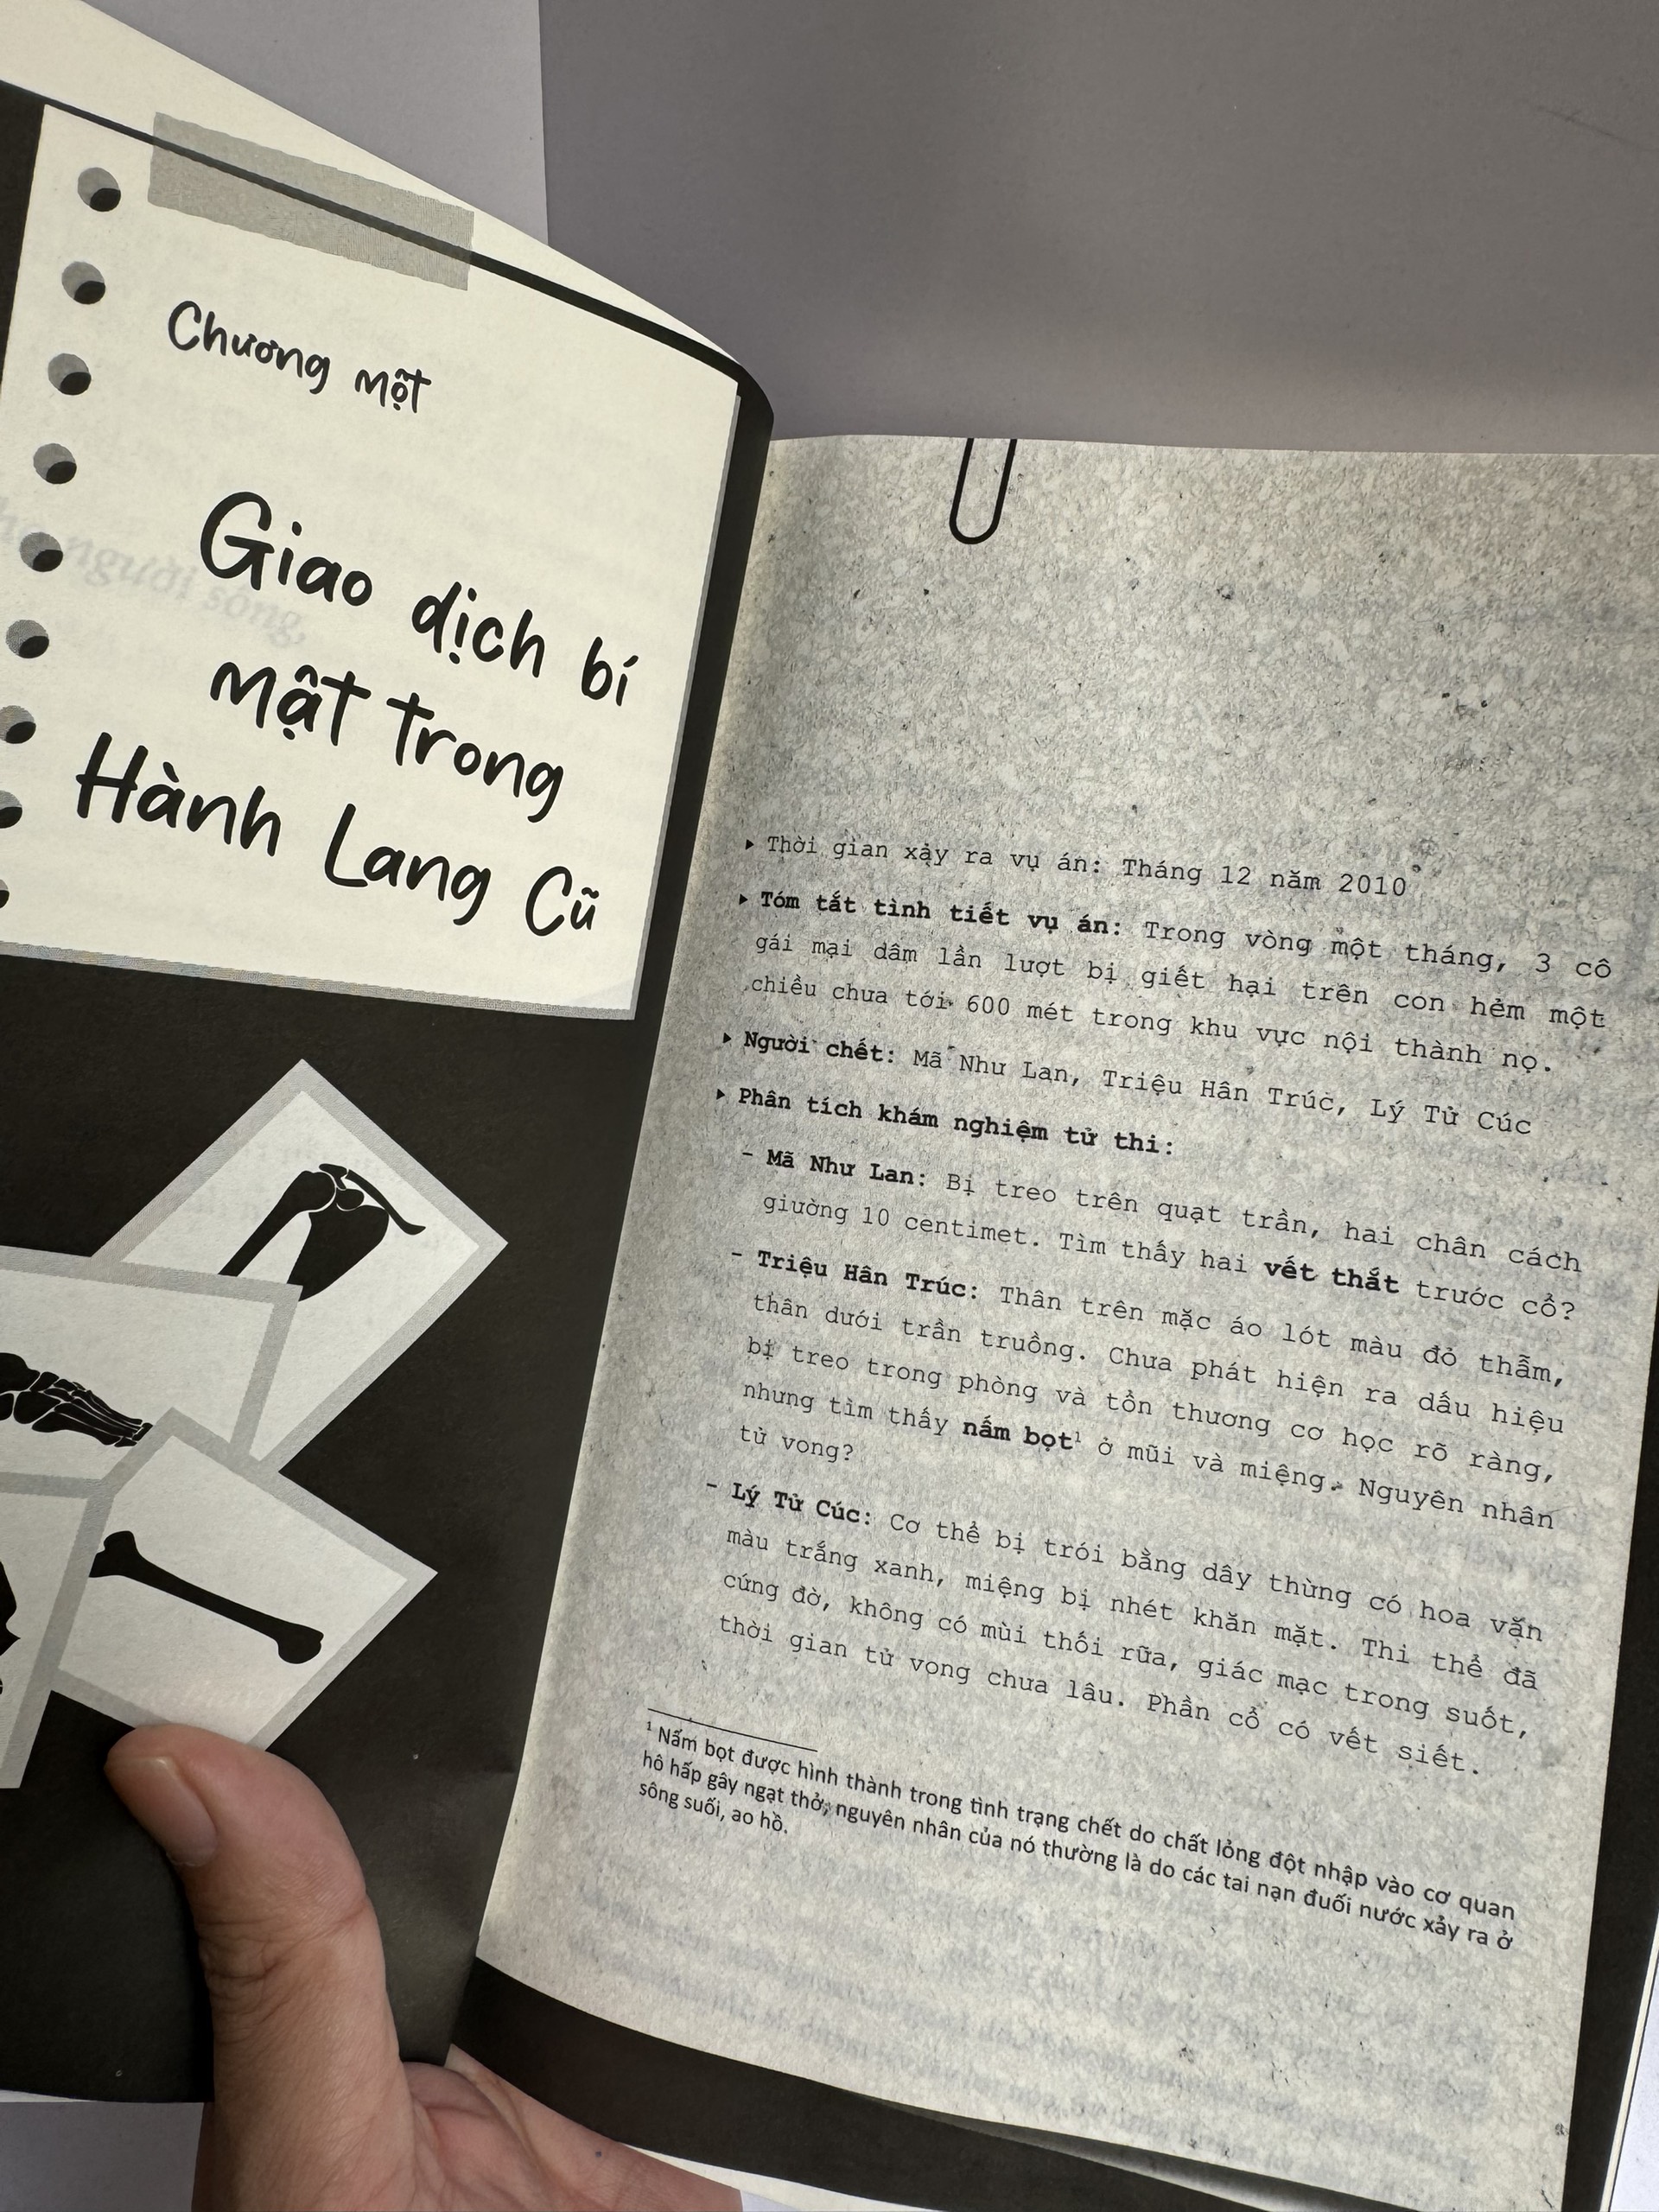 Chương một
Giao dịch bí
mật trong
Hành Lang Cũ
người sống,
▸ Thời gian xảy ra vụ án: Tháng 12 năm 2010
▸ Tóm tắt tình tiết vụ án: Trong vòng một tháng, 3 cô
gái mại dâm lần lượt bị giết hại trên con hẻm một
chiều chưa tới 600 mét trong khu vực nội thành nọ.
▸ Người chết: Mã Như Lan, Triệu Hân Trúc, Lý Tử Cúc
▸ Phân tích khám nghiệm tử thi:
- Mã Như Lan: Bị treo trên quạt trần, hai chân cách
giường 10 centimet. Tìm thấy hai vết thắt trước cổ?
- Triệu Hân Trúc: Thân trên mặc áo lót màu đỏ thẫm,
thân dưới trần truồng. Chưa phát hiện ra dấu hiệu
bị treo trong phòng và tổn thương cơ học rõ ràng,
nhưng tìm thấy nấm bọt¹ ở mũi và miệng. Nguyên nhân
tử vong?
- Lý Tử Cúc: Cơ thể bị trói bằng dây thừng có hoa văn
màu trắng xanh, miệng bị nhét khăn mặt. Thi thể đã
cứng đờ, không có mùi thối rữa, giác mạc trong suốt,
thời gian tử vong chưa lâu. Phần cổ có vết siết.
¹ Nấm bọt được hình thành trong tình trạng chết do chất lỏng đột nhập vào cơ quan
hô hấp gây ngạt thở, nguyên nhân của nó thường là do các tai nạn đuối nước xảy ra ở
sông suối, ao hồ.